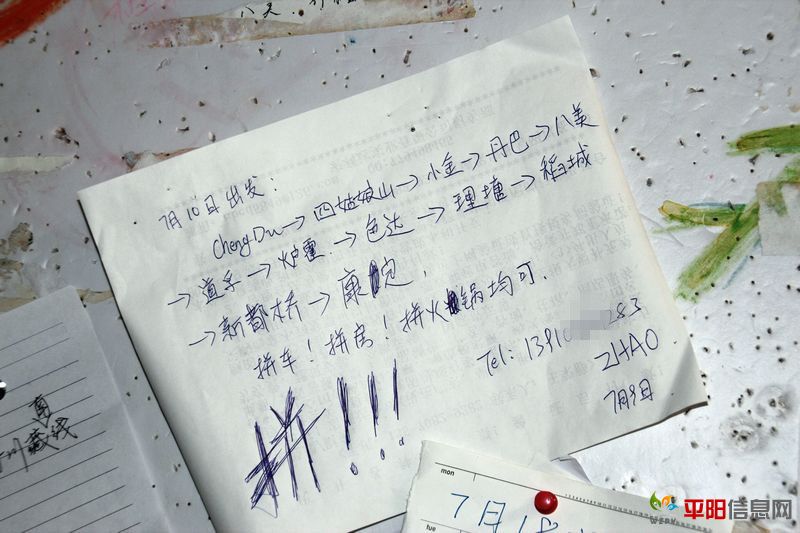 7月10日出发:
ChengDu→四姑娘山→小金→丹巴→八美
→道孚→炉霍→色达→理塘→稻城
→新都桥→康定.
拼车!拼房!拼火锅均可.
拼!!!
Tel: 13910 283
ZHAO.
7月9日.
南
川藏线
mon
7月1
tue
平阳信息网